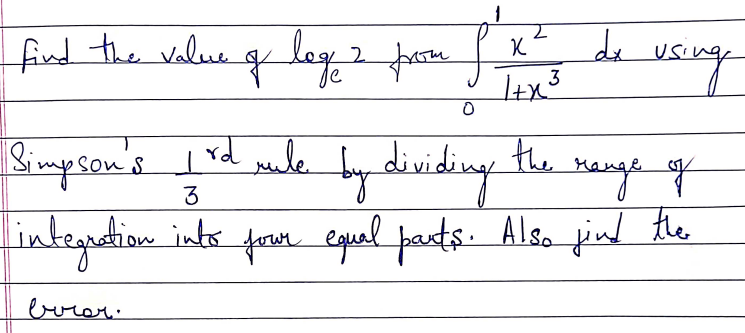 Find the value of logₑ 2 from ∫₀¹ x²/(1+x³) dx using
Simpson's 1/3 rd rule by dividing the range of
integration into four equal parts. Also find the
error.